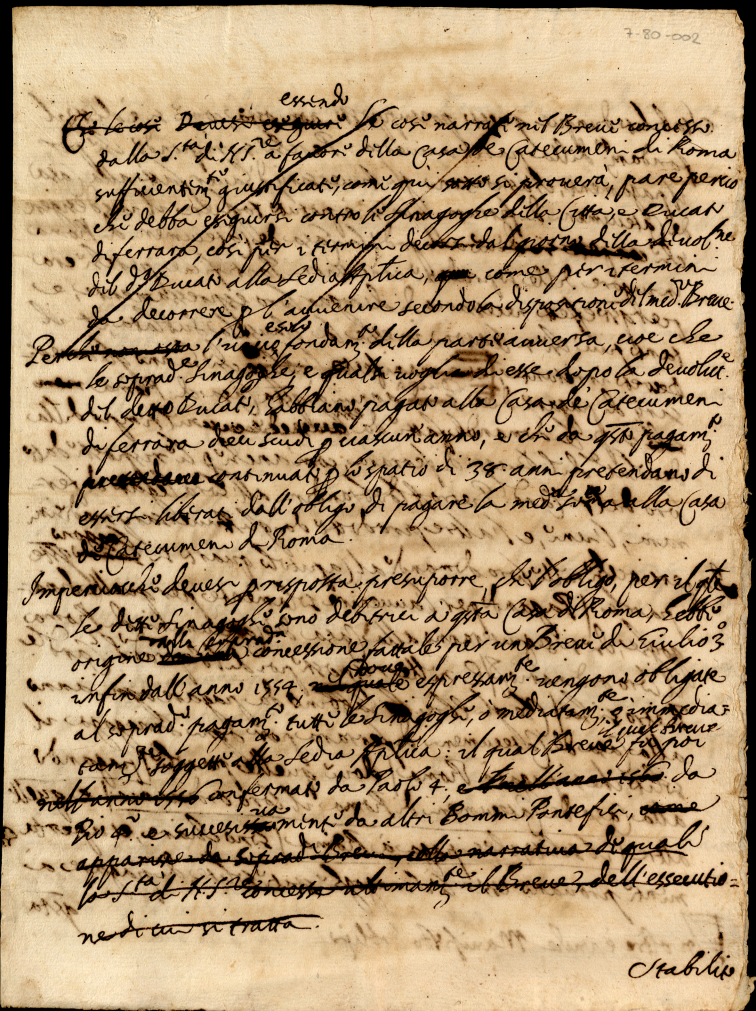 7-80-002
essendo
Che le cose Devesi eseguire le cose narrate nel Breve concesso
dalla S.tà di N.S.re a favore della Casa de Catecumeni di Roma
sufficientem.te giustificate, come qui sotto si proverà, pare perciò
che debba eseguirsi contro le Sinagoghe della Città, e Ducato
di ferrara, così per i termini decorsi dal giorno della devol.ne
del d.o Ducato alla Sedia Ap.lica, come per i termini
da decorrere p l'avvenire secondo la dispositione del med.o Breve.
Perche non osta l'unico fondam.to della parte avversa, cioe che
le soprad.e Sinagoghe, e qualsivoglia di esse dopo la devolut.e
del detto Ducato, habbiano pagato alla Casa de Catecumeni
di ferrara dieci scudi p ciascun'anno, e che da q.sto pagam.to
continuato p lo spatio di 38 anni pretendano di
essere liberate dall'obligo di pagare la med.a alla Casa
de Catecumeni di Roma.
Imperciochè devesi p risposta presuporre, che l'obligo, per il q.le
le dette Sinagoghe sono debitrici a q.sta Casa di Roma, hebbe
origine dalla soprad.a concessione fattale per un Breve di Giulio 3.o
infin dall'anno 1554. dove espressam.te vengono obligate
al soprad.o pagam.to tutte le Sinagoghe, o mediatam.te o immedia=
il qual Breve
tam.te soggette alla Sedia Ap.lica: il qual Breve fu poi
nell'anno confermato da Paolo 4, da
Pio 4.o e successivamente da altri Sommi Pontefici, come
apparisce da soprad.i Brevi, nella narrativa de quali
la S.tà di N.S.re concesse ultimam.te il Breve, dell'essecutio=
ne di cui si tratta.
Stabilito